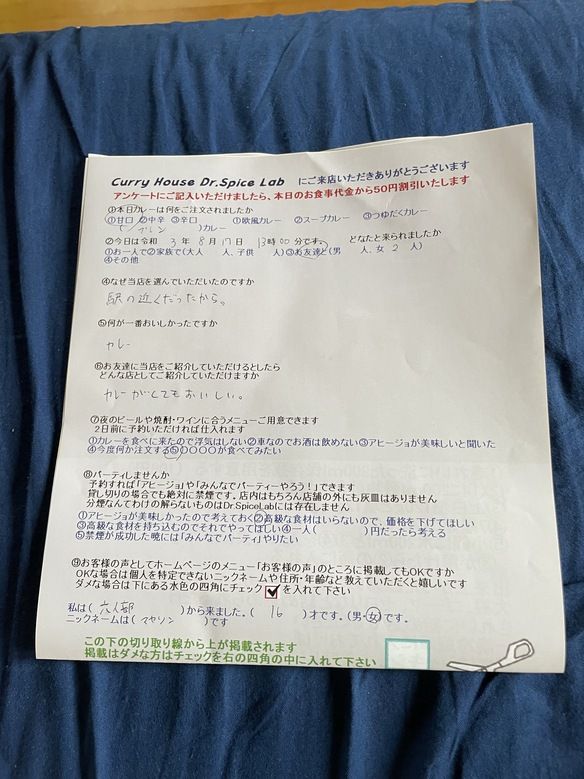 Curry House Dr.Spice Lab にご来店いただきありがとうございます
アンケートにご記入いただけましたら、本日のお食事代金から50円割引いたします
①本日カレーは何をご注文されましたか
①甘口 ②中辛 ③辛口 ①欧風カレー ②スープカレー ③つゆだくカレー
( プレン )カレー
②今日は令和 3 年 8 月 17 日 13 時 00 分です。 どなたと来られましたか
①お一人で②家族で(大人 人、子供 人)③お友達と(男 人、女 2 人)
④その他
④なぜ当店を選んでいただいたのですか
駅の近くだったから。
⑤何が一番おいしかったですか
カレー
⑥お友達に当店をご紹介していただけるとしたら
どんな店としてご紹介していただけますか
カレーがとてもおいしい。
⑦夜のビールや焼酎・ワインに合うメニューご用意できます
2日前に予約いただければ仕入れます
①カレーを食べに来たので浮気はしない②車なのでお酒は飲めない③アヒージョが美味しいと聞いた
④今度何か注文する⑤〇〇〇〇が食べてみたい
⑧パーティしませんか
予約すれば「アヒージョ」や「みんなでパーティーやろう!」できます
貸し切りの場合でも絶対に禁煙です。店内はもちろん店舗の外にも灰皿はありません
分煙なんてわけの解らないものはDr.SpiceLabには存在しません
①アヒージョが美味しかったので考えておく②高級な食材はいらないので、価格を下げてほしい
③高級な食材を持ち込むのでそれでやってほしい④一人( )円だったら考える
⑤禁煙が成功した晩には「みんなでパーティ」やりたい
⑨お客様の声としてホームページのメニュー「お客様の声」のところに掲載してもOKですか
OKな場合は個人を特定できないニックネームや住所・年齢など教えていただくと嬉しいです
ダメな場合は下にある水色の四角にチェック☑を入れて下さい
私は( 六人部 )から来ました。( 16 )才です。(男・女)です。
ニックネームは( マヤソン )です
この下の切り取り線から上が掲載されます
掲載はダメな方はチェックを右の四角の中に入れて下さい